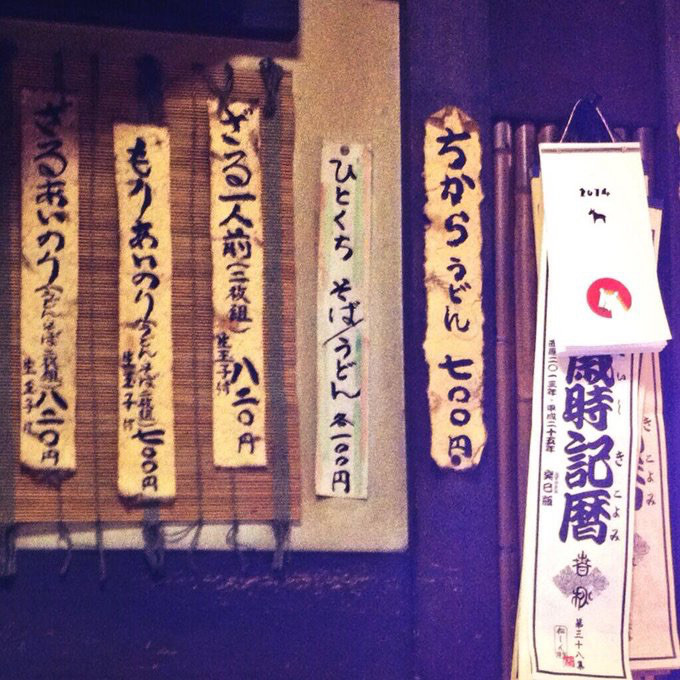 2014
時記暦
きこよみ
西暦二〇一三年・平成二十五年 癸巳版
春秋
第三十八集
ちからうどん 七〇〇円
ひとくち そば/うどん 各一〇〇円
ざる一人前(二枚組)生玉子付 八二〇円
もりあいのり(うどん・そば二枚組)生玉子付 七〇〇円
ざるあいのり(うどん・そば二枚組)生玉子付 八二〇円